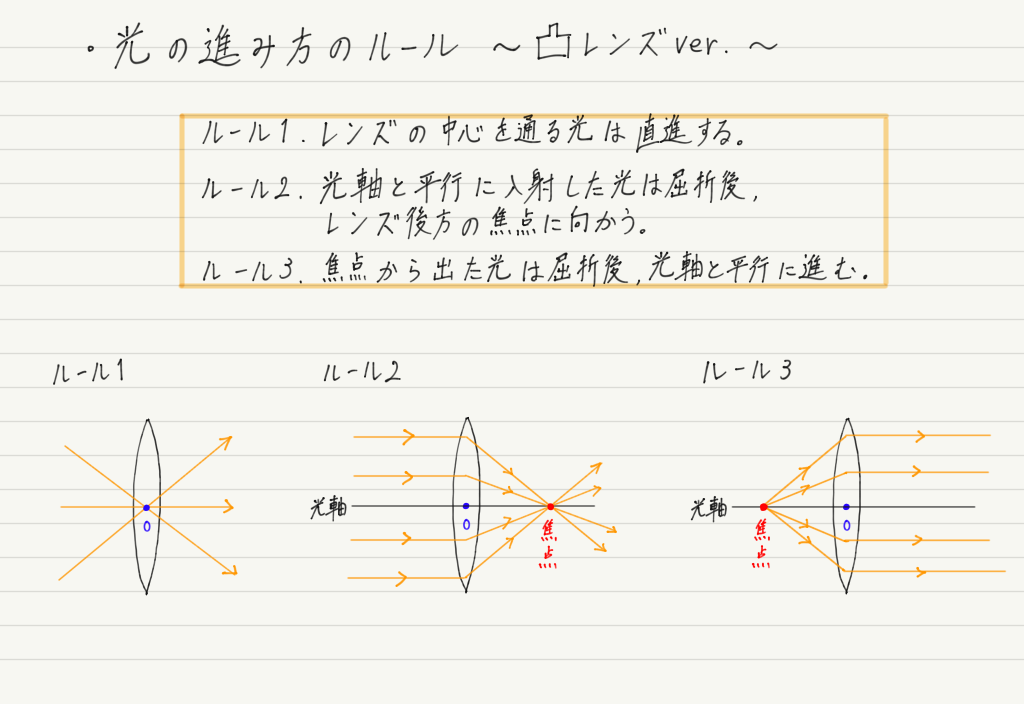 ・光の進み方のルール ～凸レンズver.～
ルール1. レンズの中心を通る光は直進する。
ルール2. 光軸と平行に入射した光は屈折後,
レンズ後方の焦点に向かう。
ルール3. 焦点から出た光は屈折後,光軸と平行に進む.
ルール1
ルール2
ルール3
O
光軸
O
焦点
光軸
焦点
O